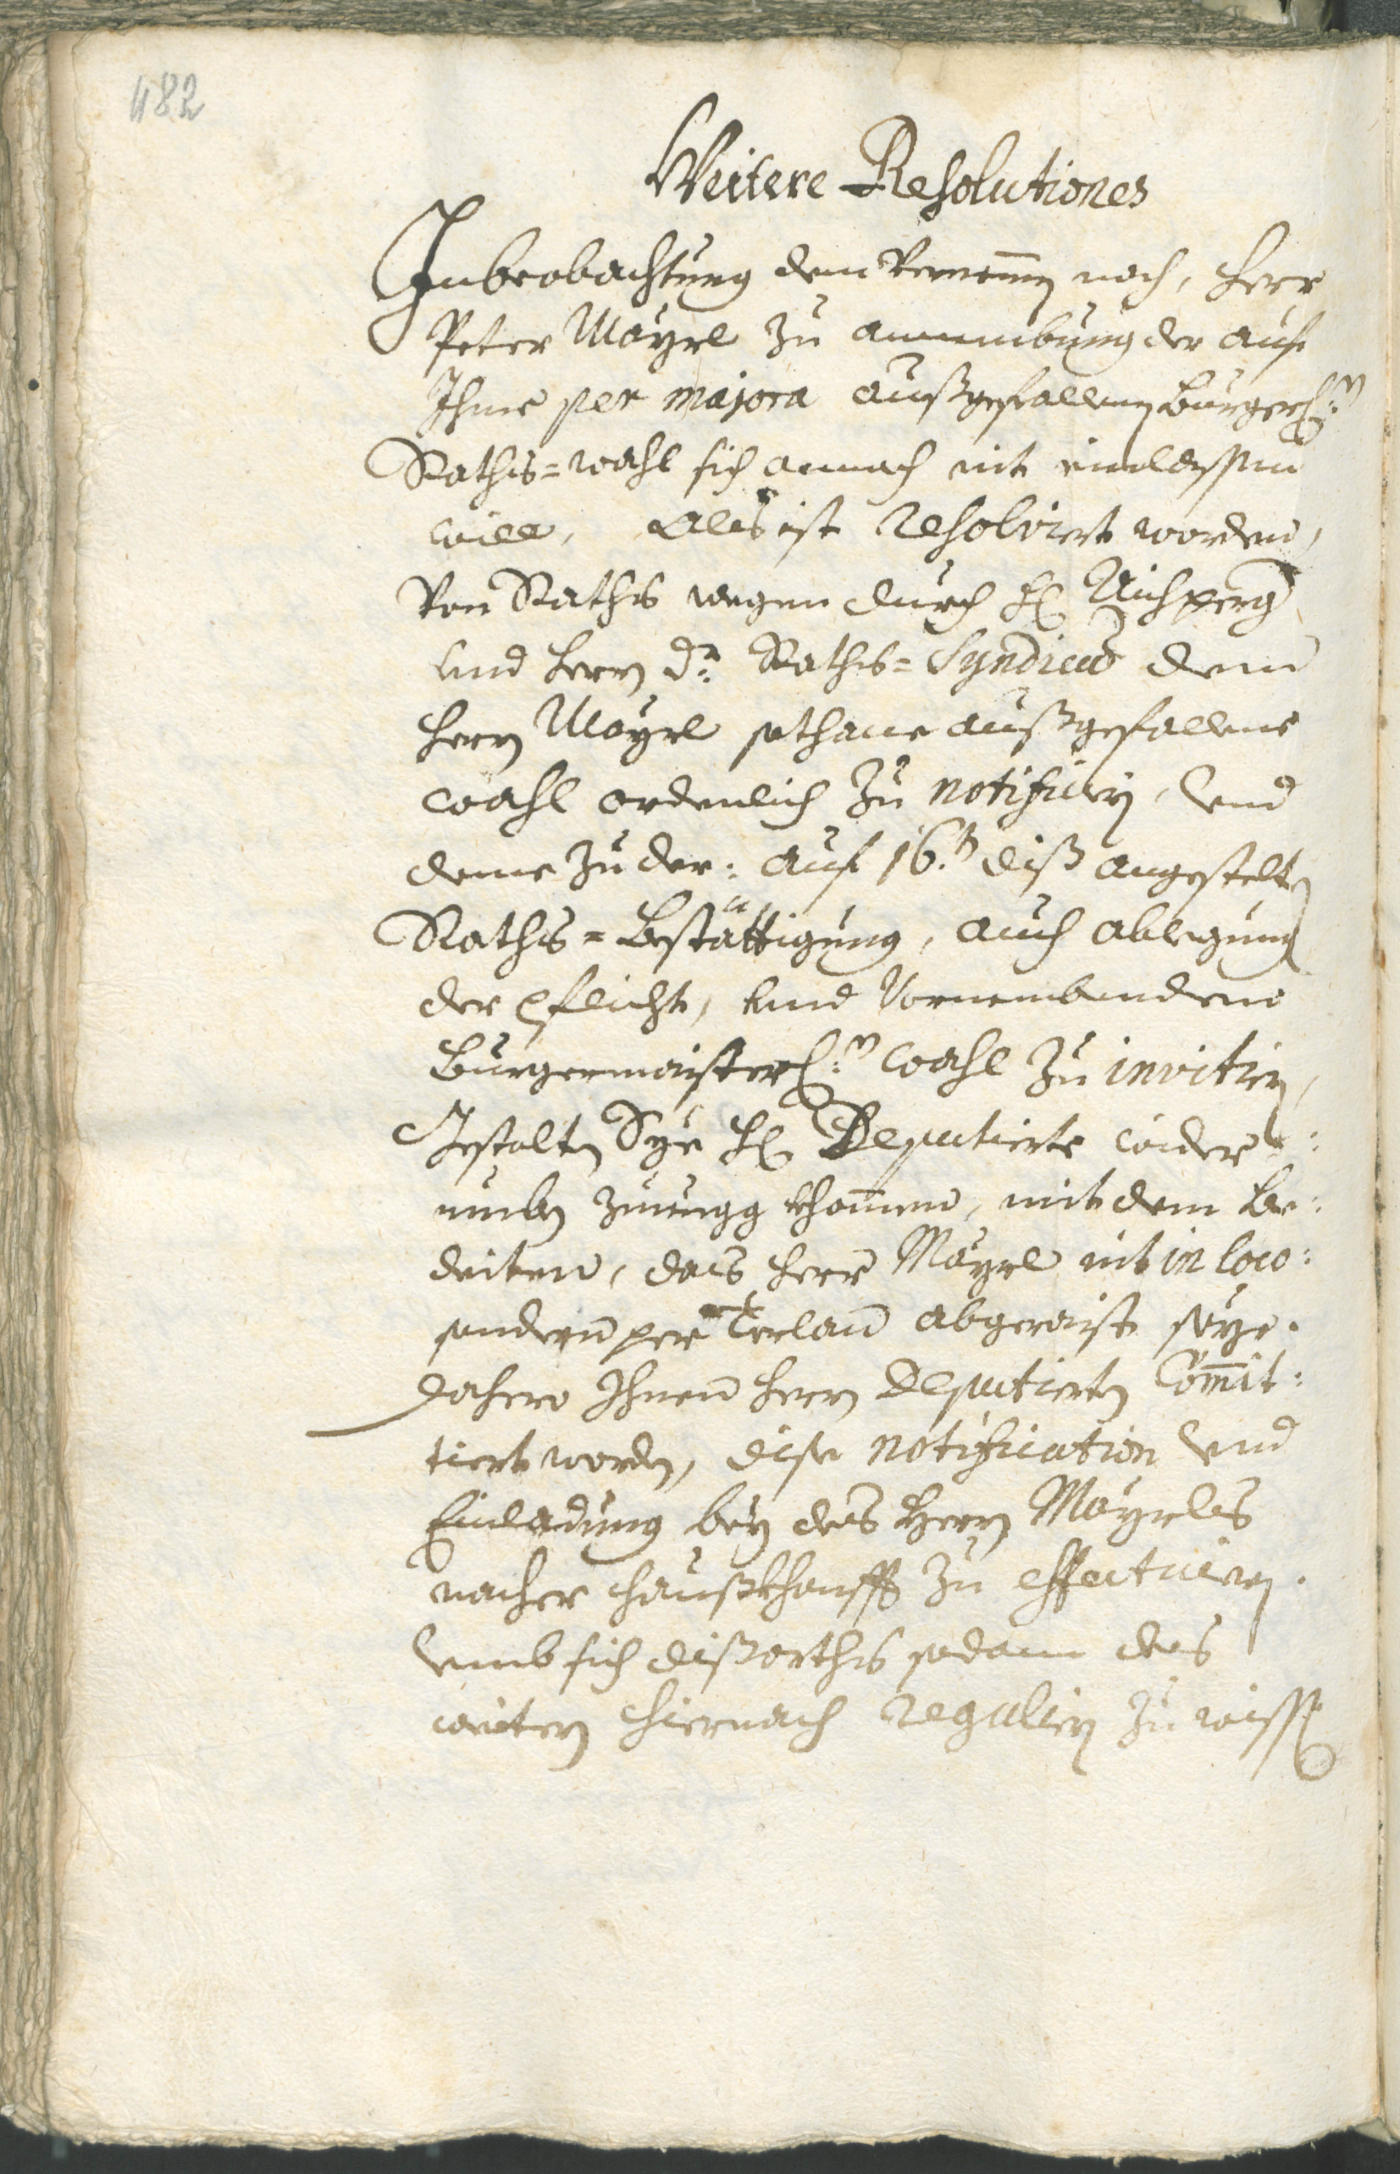 482
Weitere Resolutiones
In beobachtung dem Vernemmen nach, Herr
Peter Mayrl zu annembung der auf
Ihme per majora außgefallnen Burgerl:n
Raths=wahl sich annoch nit einlassen
wille, Als ist resolviert worden,
Von Raths wegen durch H: Aichperg
und Herrn Dr: Raths=Syndicus dem
Herrn Mayrl sothane außgefallene
wahl ordenlich zu notificiern, und
deme zu der: auf 16.ten diß angestelten
Raths=Bestättigung, auch ablegung
der pflicht, und Vornembendene
Burgermaisterl:n wahl zu invitiern,
Gestalten Sye H: Deputierte wider:
umben zurugg khommen, mit dem be:
deiten, das Herr Mayrl nit in loco:
sondern per Terlan abgeraist seye.
Dahero Ihnen Herrn Deputierten Committ:
tiert worden, dise notification und
Einladung bey des Herrn Mayrls
nacher Haußkhonfft zu effectuiern.
Umb sich dißorths sodann des
weitern hiernach regulieren zu wissen